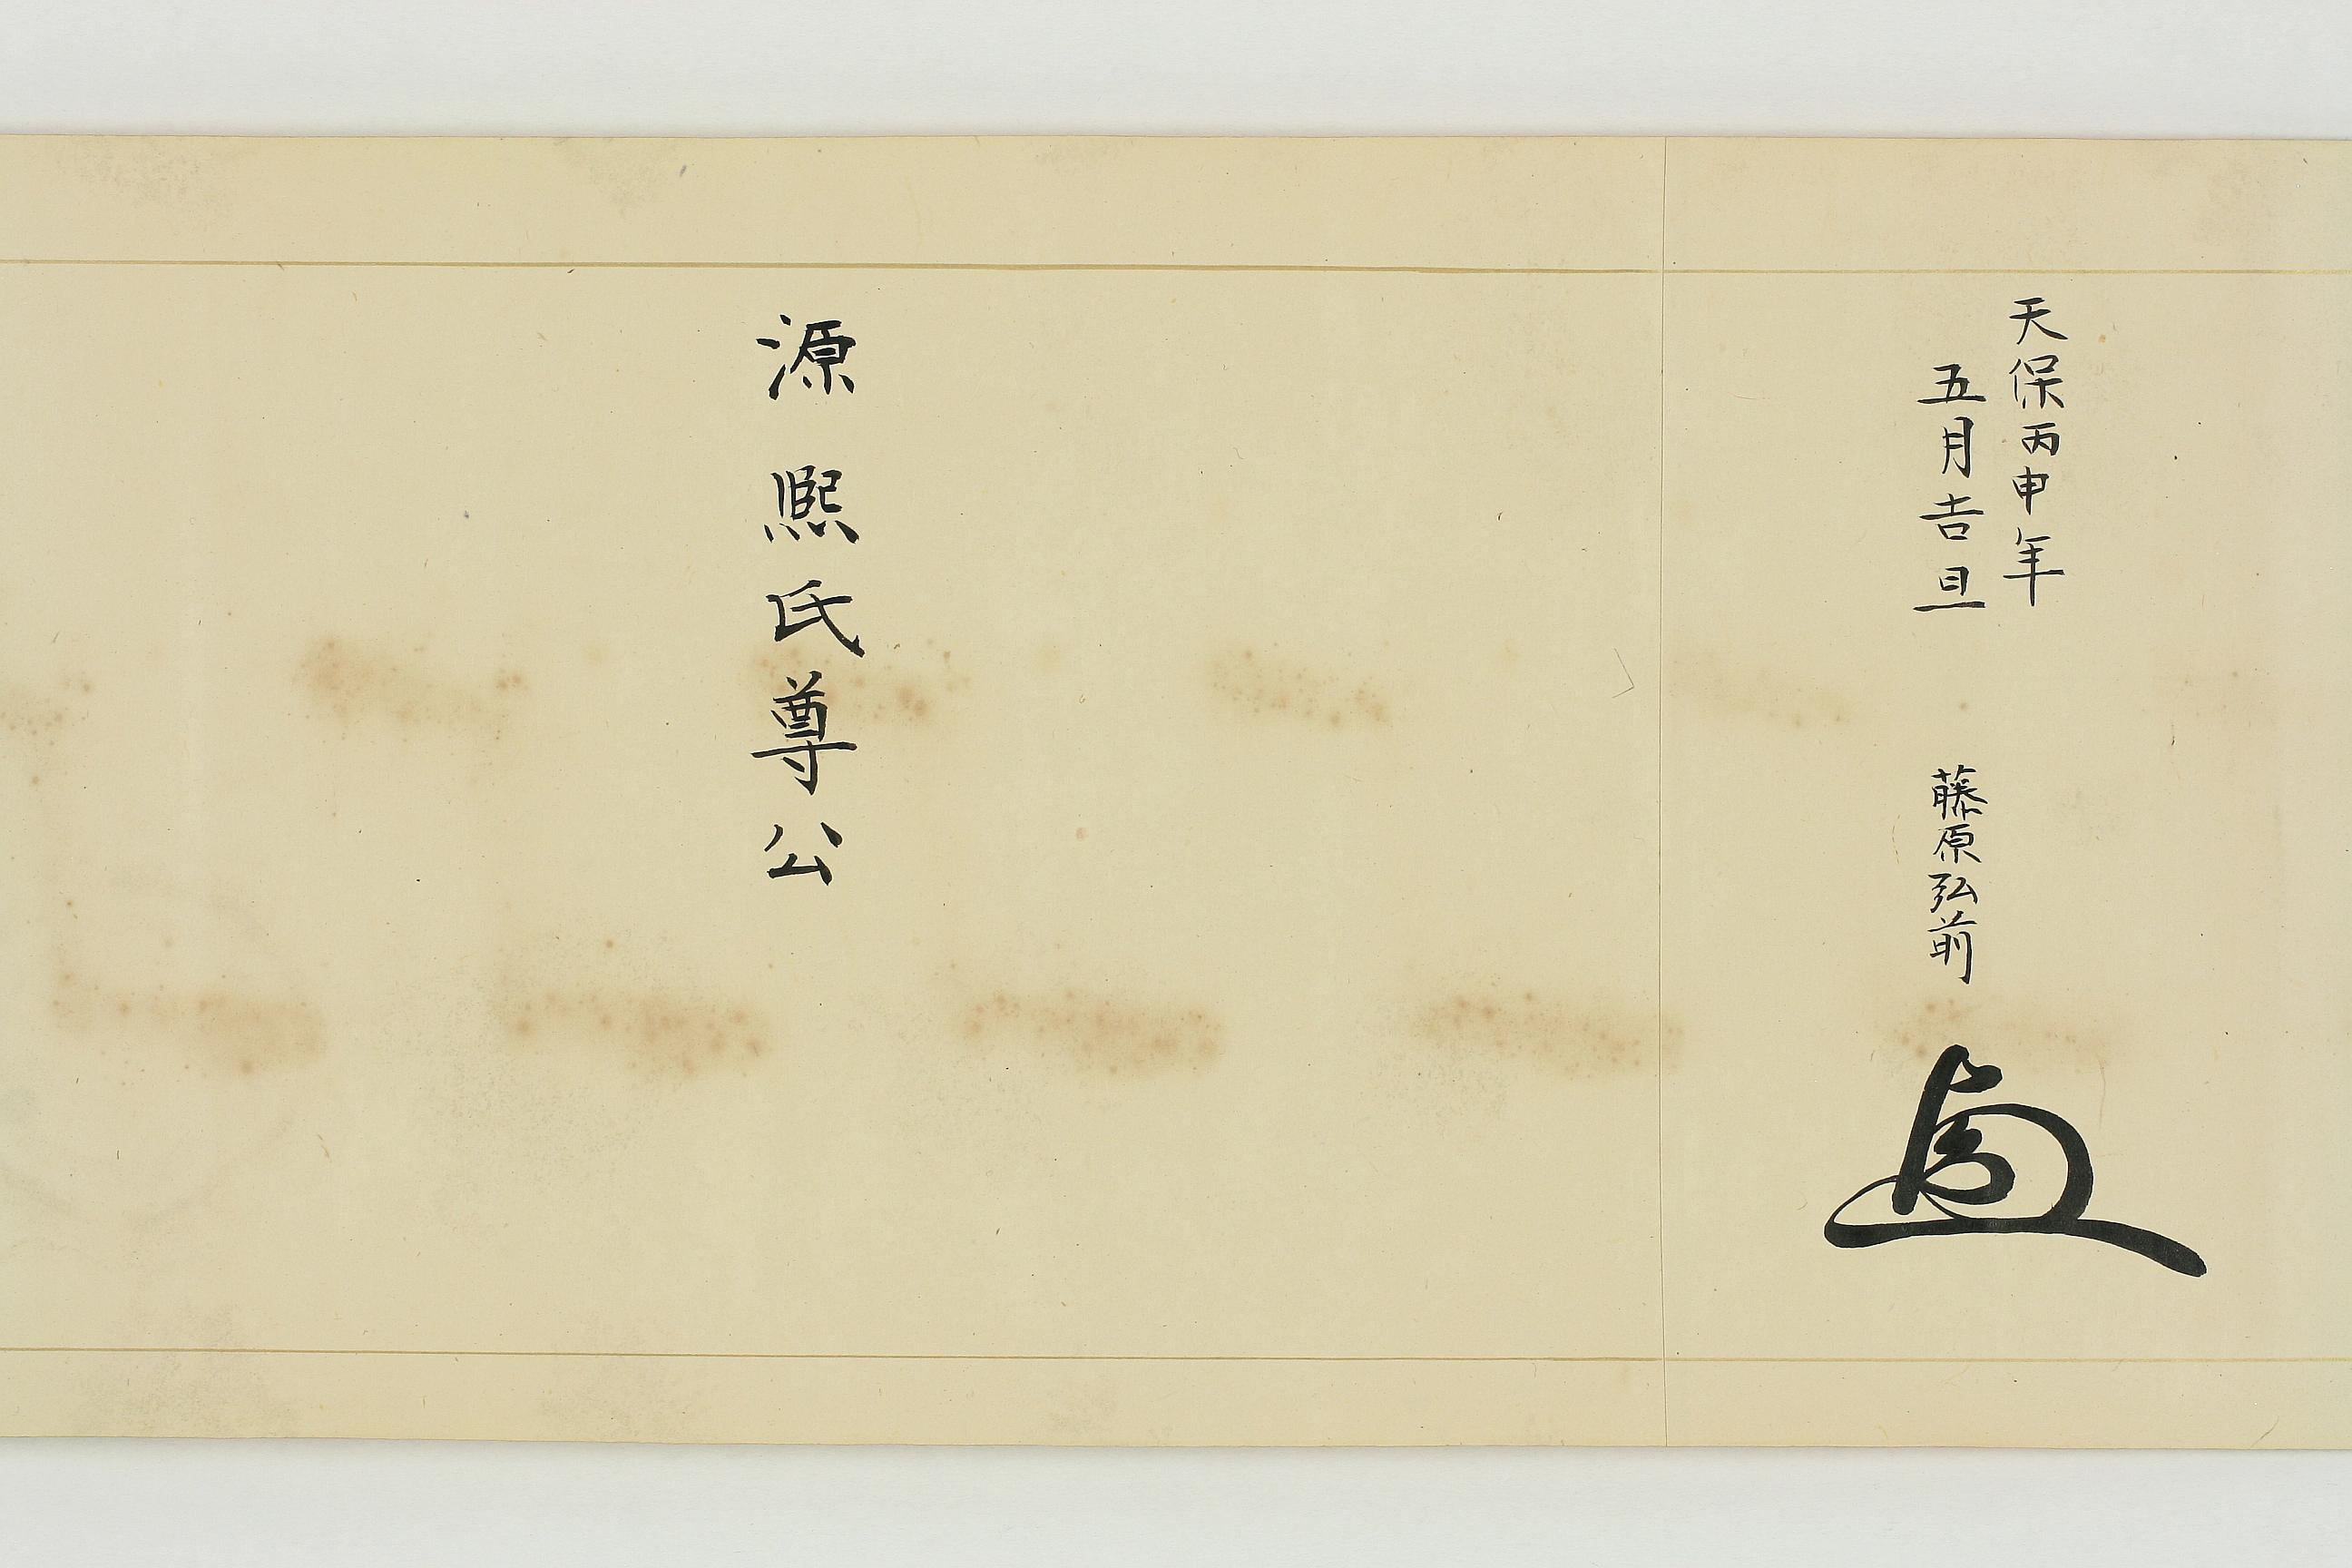 天保丙申年
五月吉旦
藤原弘前
源熙氏尊公